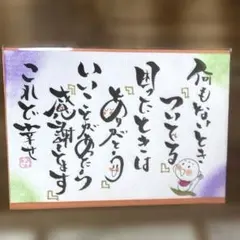 何もないとき
『ついてる』
困ったときは
『ありがとう』
いいことがあったら
『感謝してます』
これで幸せ